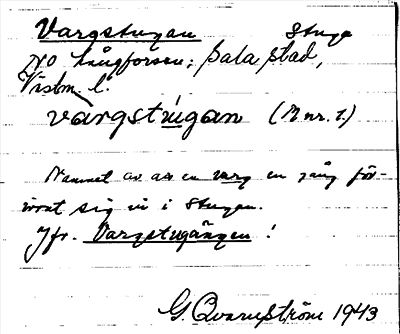 Vargstugan Stuga
NO Långforsen, Sala stad,
Vstm. l.
vargstùgan (M nr. 1.)
Namnet av att en varg en gång för-
irrat sig in i stugan.
Jfr. Vargstugängen!
G. Qvarnström 1943